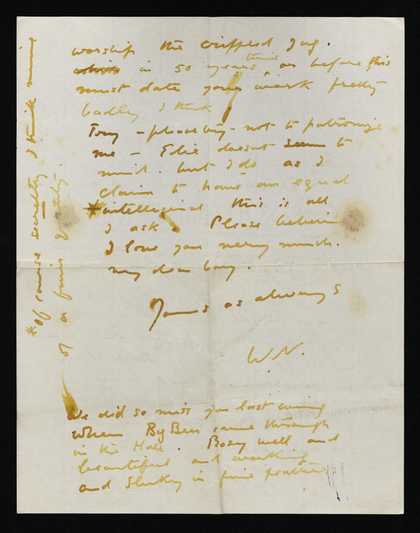 worship the crippled Jug.
in 50 years time, as before this
must date your work pretty
badly I think
Tony - please try - not to patronize
me - Elie doesnt seem to
mind. but I do as I
claim to have an equal
*intelligence this is all
I ask. Please believe
I love you very much.
my dear boy.
Yours as always
W.N.
We did so miss you last evening
when Big Ben came through
in the Hall. Rosy well and
beautiful and working
and Sluthey in fine feather
*of course secretly I think mine
of a finer quality.